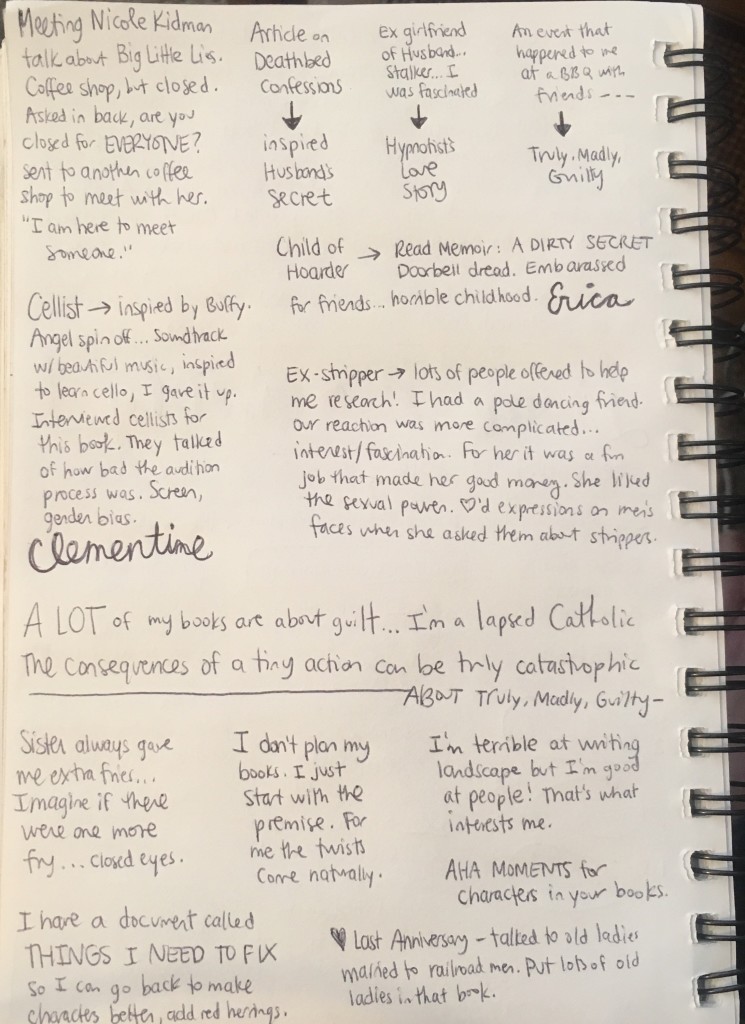 Meeting Nicole Kidman
talk about Big Little Lies.
Coffee shop, but closed.
Asked in back, are you
closed for EVERYONE?
sent to another coffee
shop to meet with her.
"I am here to meet
someone."
Article on
Deathbed
Confessions
inspired
Husband's
Secret
Ex girlfriend
of Husband...
Stalker... I
was fascinated
Hypnotist's
Love
Story
An event that
happened to me
at a BBQ with
friends ---
Truly, Madly,
Guilty
Child of
Hoarder
→ Read Memoir: A DIRTY SECRET
Doorbell dread. Embarassed
for friends... horrible childhood. Erica
Cellist → inspired by Buffy.
Angel spin off... Soundtrack
w/ beautiful music, inspired
to learn cello, I gave it up.
Interviewed cellists for
this book. They talked
of how bad the audition
process was. Screen,
gender bias.
Clementine
Ex-stripper → lots of people offered to help
me research! I had a pole dancing friend.
Our reaction was more complicated...
interest/fascination. For her it was a fun
job that made her good money. She liked
the sexual power. ♡'d expressions on men's
faces when she asked them about strippers.
A LOT of my books are about guilt... I'm a lapsed Catholic
The consequences of a tiny action can be truly catastrophic
ABOUT Truly, Madly, Guilty-
Sister always gave
me extra fries...
Imagine if there
were one more
fry... closed eyes.
I don't plan my
books. I just
start with the
premise. For
me the twists
come naturally.
I'm terrible at writing
landscape but I'm good
at people! That's what
interests me.
AHA MOMENTS for
characters in your books.
I have a document called
THINGS I NEED TO FIX
so I can go back to make
characters better, add red herrings.
♥ Last Anniversary - talked to old ladies
married to railroad men. Put lots of old
ladies in that book.